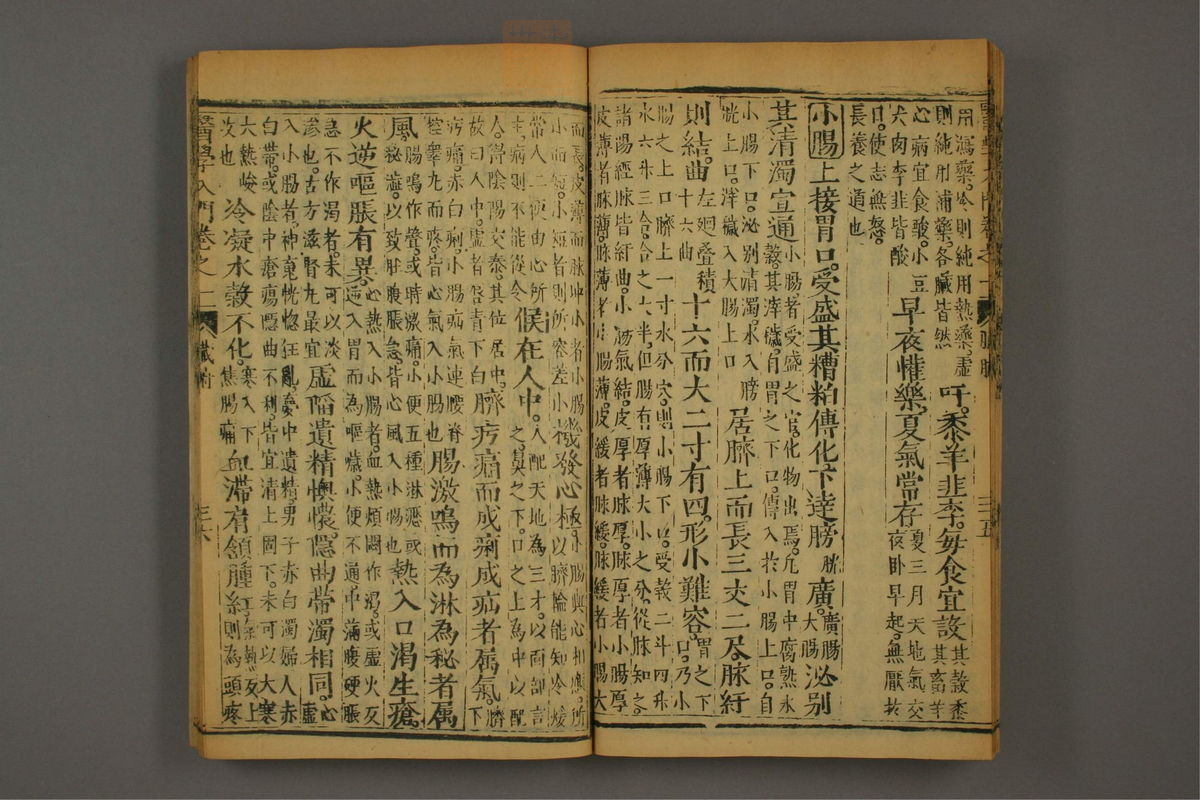 用瀉藥。冷則純用熱藥。虛
則純用補藥各臟皆然
吁。黍羊韭李。毋食宜設
其穀黍
其畜羊
心病宜食酸。小豆
犬肉李韭皆酸
早夜懽樂。夏氣常存
夏三月天地氣交
夜卧早起。無厭於
日。使志無怒。
長養之道也
小腸上接胃口。受盛其糟粕傳化。下達膀胱廣。
廣腸
大腸
泌别
其清濁宣通
小腸者受盛之官。化物出焉。凡胃中腐熟水
穀。其滓穢。自胃之下口。傳入於小腸上口。自
小腸下口。泌别清濁。水入膀
胱上口。滓穢入大腸上口
居臍上而長三丈二尺。脉紆
則結曲
左廻叠積
十六曲
十六而大二寸有四。形小難容。
胃之下
口。乃小
腸之上口臍上一寸水分穴。則小腸下口。受穀二斗四升
水六升三合合之大半。但腸有厚薄大小之分。從脉知之
諸陽經脉皆紆曲。小腸氣結。皮厚者脉厚。脉厚者小腸厚
皮薄者脉薄。脉薄者小腸薄。皮緩者脉緩。脉緩者小腸大
而長。皮薄而脉冲小者小腸
小而短。小短則所容差小
機發心極。
小腸與心相應。所
以臍輪能知冷煖
常人二便由心所
主。病則不能從令
候在人中。
人配天地為三才。以面部言
之。鼻之下。口之上為中以配
人。得陰陽交泰。其位居中。
故曰人中。虛者唇青下白
臍疞痛而成痢成疝者属氣。
臍
下
疞痛。赤白痢。小腸疝氣連腰脊
控睾丸而疼。皆心氣入小腸也
腸激鳴而為淋為秘者属
風。
腸鳴作聲。或時激痛。小便五種淋澀或
秘澁。以致肚腹脹急。皆心風入小腸也
熱入口渴生瘡。
火逆嘔脹有異。
心熱入小腸者。血熱煩悶作渴。或虛火反
逆入胃而為嘔噦。小便不通。中滿腹硬脹
急不作渴者。未可以淡
滲也。古方滋腎丸最宜
虛陷遺精懊憹。隱曲帶濁相同。
心
虛
入小腸者。神竟恍惚狂亂。夢中遺精。男子赤白濁。婦人赤
白帶。或陰中瘡瘍。隱曲不利。皆宜清上固下。未可以大寒
大熱峻
攻也
冷凝水穀不化
寒入下
焦腸痛
血滯有頷腫紅。
熱反上
則為頭疼
醫學入門卷之二
臟腑
三六